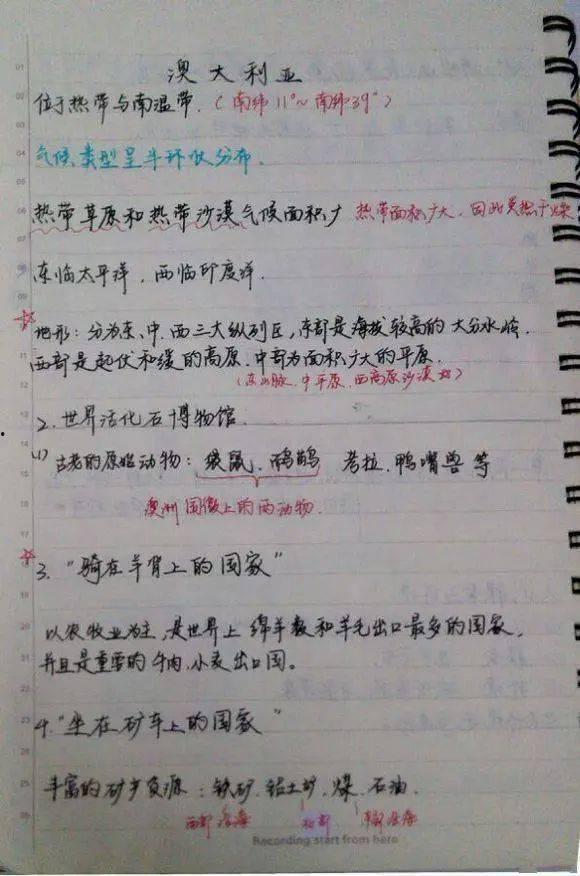 澳大利亚
位于热带与南温带.(南纬11°~南纬39°)
气候类型呈半环状分布.
热带草原和热带沙漠气候面积广 热带面积广大,因此炎热干燥
东临太平洋,西临印度洋.
☆地形:分为东、中、西三大纵列区,东部是海拔较高的大分水岭.
西部是起伏和缓的高原.中部为面积广大的平原.
(东山脉.中平原.西高原沙漠)
2.世界活化石博物馆.
(1)古老的原始动物:袋鼠.鸸鹋 考拉.鸭嘴兽等
澳洲国徽上的两动物.
☆3."骑在羊背上的国家"
以农牧业为主,是世界上绵羊数和羊毛出口最多的国家,
并且是重要的牛肉.小麦出口国。
4."坐在矿车上的国家"
丰富的矿产资源:铁矿.铝土矿.煤.石油.
西部沿海 北部 东部沿海
Recording start from here